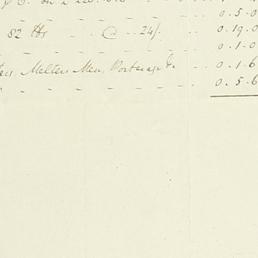 0. 5. 0
82 lbs @ 24/. 0. 19. 0
0. 1. 0
Melters Men, Porterage &c 0. 1. 6
0. 5. 6